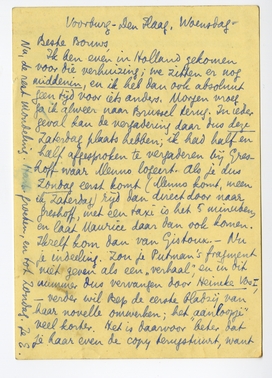 Voorburg - Den Haag, Woensdag -
Beste Bouws,
Ik ben even in Holland gekomen
voor die verhuizing; we zitten er nog
middenin, en ik heb dan ook absoluut
geen tijd voor iets anders. Morgen vroeg
ga ik alweer naar Brussel terug. In ieder
geval kan de vergadering daar dus deze
Zaterdag plaats hebben; ik had half en
half afgesproken te vergaderen bij Gres-
hoff waar Menno logeert. Als je dus
Zondag eerst komt (Menno komt, meen
ik, Zaterdag) rijd dan direct door naar
Greshoff, met een taxi is het 5 minuten,
en laat Maurice daar dan ook komen.
Ikzelf kom dan van Gistoux. - Nu
je indeeling. Zou je Putman's fragment
niet geven als een "verhaal", en in dit
nummer dus vervangen door Heineke Vos?,
- verder wil Rep de eerste bladzij van
haar novelle omwerken; het "aanloopje"
veel korter. Het is daarvoor beter dat
je haar even de copy terugstuurt, want
Nu, de rest mondeling
spreken, en tot Zondag. Je E.